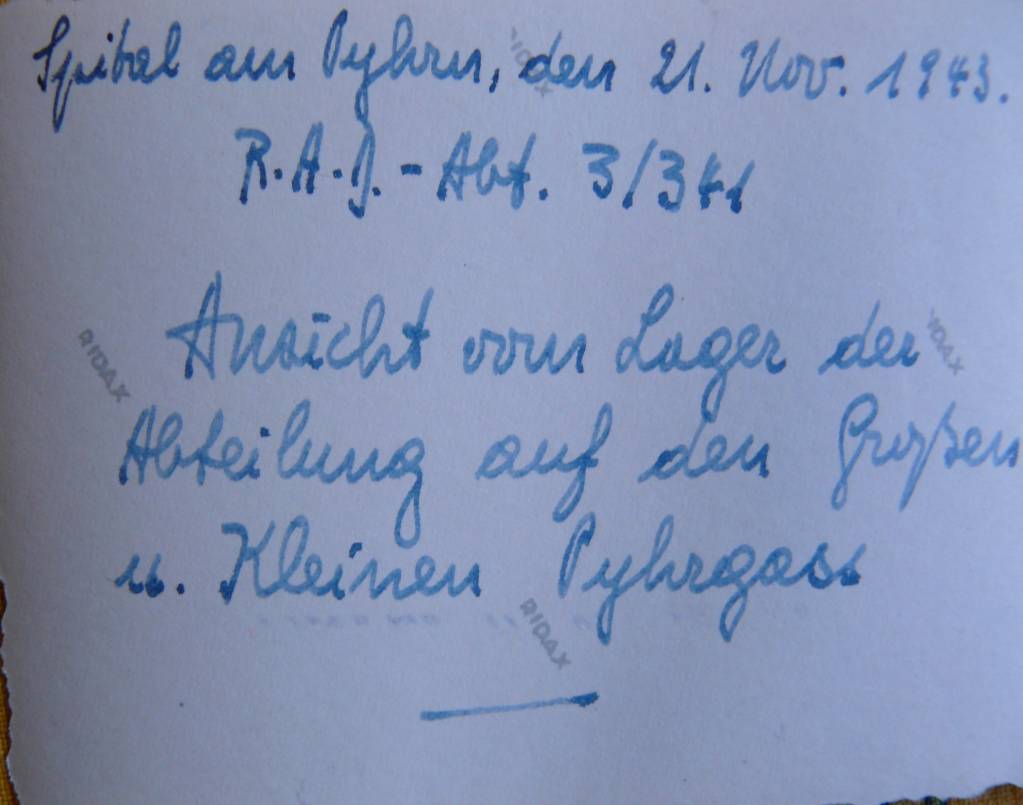 Spital am Pyhrn, den 21. Nov. 1943.
R.A.D.-Abt. 3/341
Ansicht vom Lager der
Abteilung auf den Großen
u. Kleinen Pyhrgass
RIDAX
RIDAX
RIDAX
RIDAX